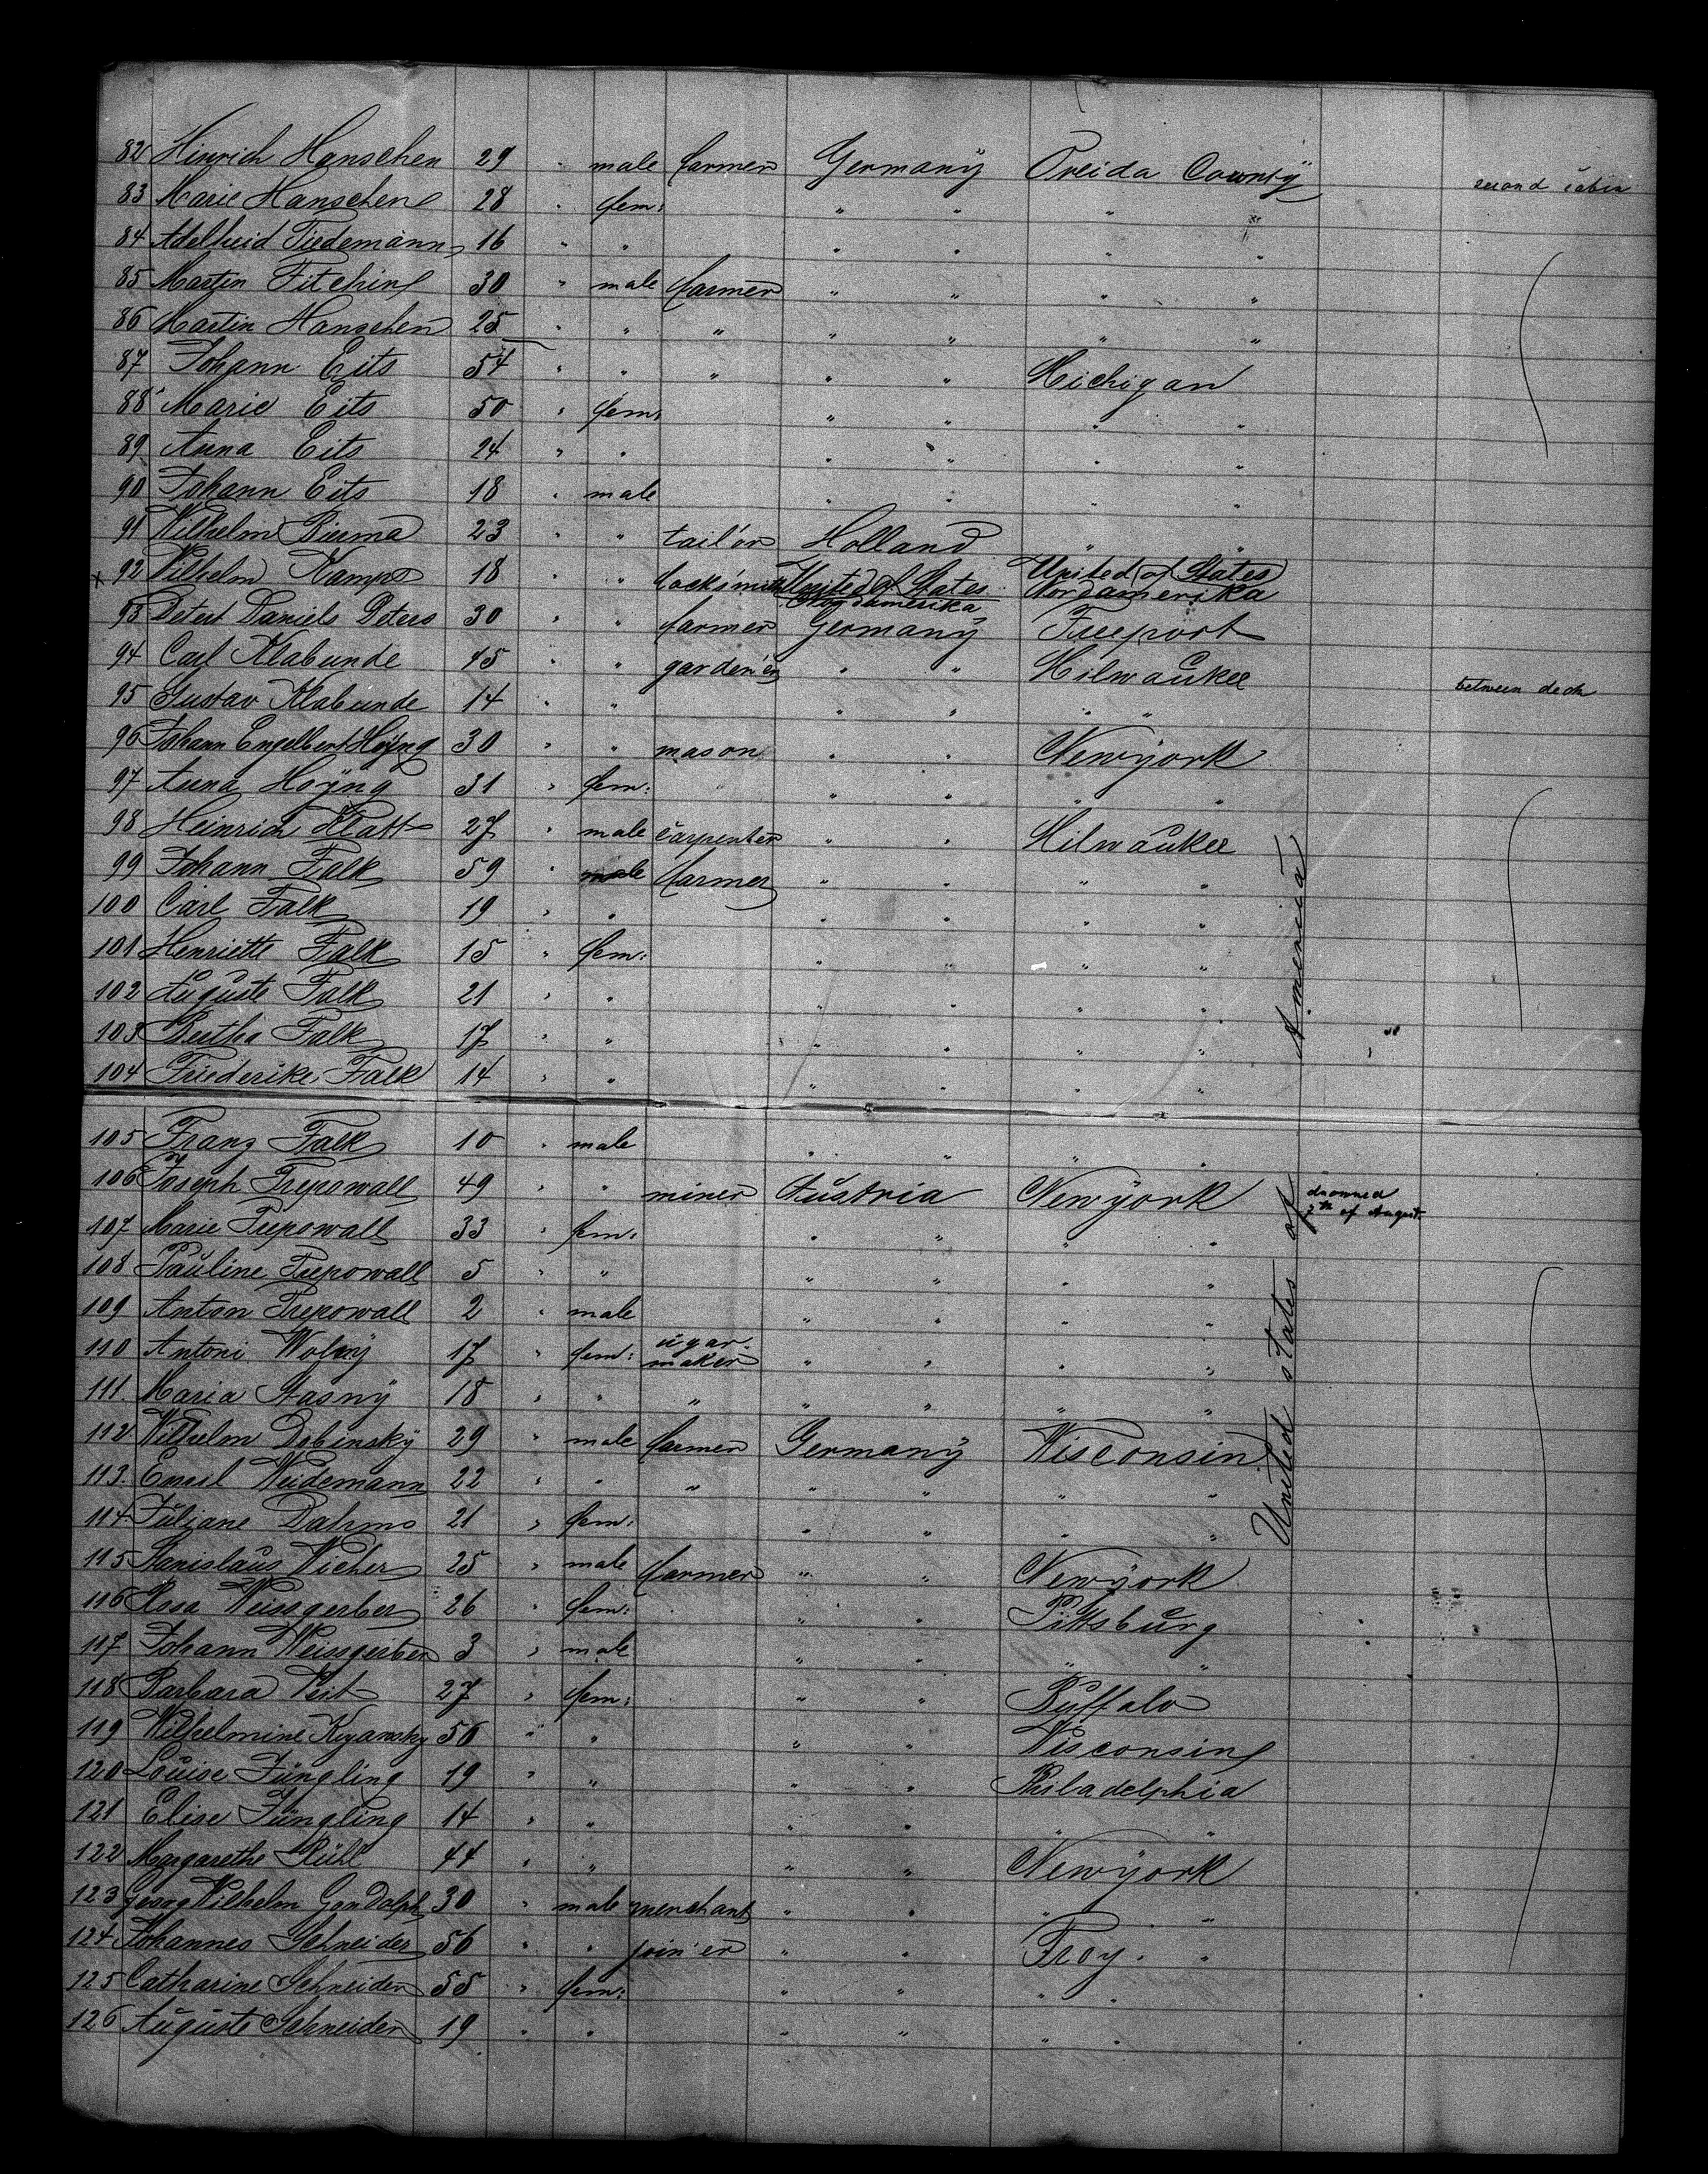 82 Hinrich Hanschen 29 " male farmer Germany Oneida County second cabin
83 Marie Hanschen 28 " fem: " " " "
84 Adelheid Tiedemann 16 " " " " " "
85 Martin Fitchin 30 " male farmer " " " "
86 Martin Hanschen 25 " " " " " " "
87 Johann Eits 54 " " " " " Michigan
88 Marie Eits 50 " fem: " " " "
89 Anna Eits 24 " " " " " "
90 Johann Eits 18 " male " " " "
91 Wilhelm Biema 23 " " tailor Holland " "
92 Wilhelm Kamps 18 " " locksmith United of States Nordamerika United of States Nordamerika
93 Detert Daniels Peters 30 " " farmer Germany Freeport
94 Carl Klabunde 45 " " gardener " " Milwaukee between deck
95 Gustav Klabunde 14 " " " " " "
96 Johann Engelbert Hoÿng 30 " " mason " " Newyork
97 Anna Hoÿng 31 " fem: " " " "
98 Heinrich Klatt 27 " male carpenter " " Milwaukee
99 Johann Falk 59 " male farmer " " " "
100 Carl Falk 19 " " " " " "
101 Henriette Falk 15 " fem: " " " "
102 Auguste Falk 21 " " " " " "
103 Bertha Falk 17 " " " " " "
104 Friederike Falk 14 " " " " " "
105 Franz Falk 10 " male " " " "
106 Joseph Trepowall 49 " " miner Austria Newyork drowned 7th of August.
107 Marie Trepowall 33 " fem: " " " "
108 Pauline Trepowall 5 " " " " " "
109 Anton Trepowall 2 " male " " " "
110 Antoni Wolny 17 " fem: cigar maker " " " "
111. Maria Stasny 18 " " " " " " "
112 Wilhelm Dobinsky 29 " male farmer Germany Wisconsin
113. Emil Weidemann 22 " " " " " " "
114. Juliane Dahms 21 " fem: " " " "
115 Stanislaus Wicher 25 " male farmer " " Newyork
116 Rosa Weissgerber 26 " fem: " " Pittsburg
117 Johann Weissgerber 3 " male " " " "
118 Barbara Veit 27 " fem: " " Buffalo
119 Wilhelmine 56 " " " " Wisconsin
120 Louise Jüngling 19 " " " " Philadelphia
121 Elise Jüngling 14 " " " " " "
122 Margarethe Rühl 44 " " " " Newyork
123 Georg Wilhelm Gondolph 30 " male merchant " " " "
124 Johannes Schneider 56 " " joiner " " Troy. "
125 Catharine Schneider 55 " fem: " " " "
126 Auguste Schneider 19 " " " " " "
United states of America